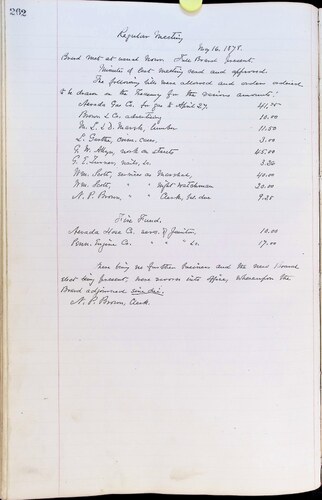 202
Regular Meeting
May 16, 1878.
Board met at usual hour. Full Board present
Minutes of last meeting read and approved.
The following bills were allowed and orders ordered
to be drawn on the Treasury for the various amounts:
Nevada Gas Co. for gas to April 27. 41.75
Brown & Co. advertising 10.00
M. L. & D. Marsh, lumber 11.50
3.00
G. W. work on streets 65.00
G. E. Turner, nails &c. 3.26
Wm. Scott, services as Marshal, 40.00
Wm. Scott, " " night watchman 30.00
N. P. Brown, " " Clerk, bal. due 9.25
Fire Fund.
Nevada Hose Co. & Janitor 10.00
Penn. Engine Co. " " &c. 17.00
There being no further business and the new Board
elect being present, were sworn into office, whereupon the
Board adjourned sine die.
N. P. Brown, Clerk